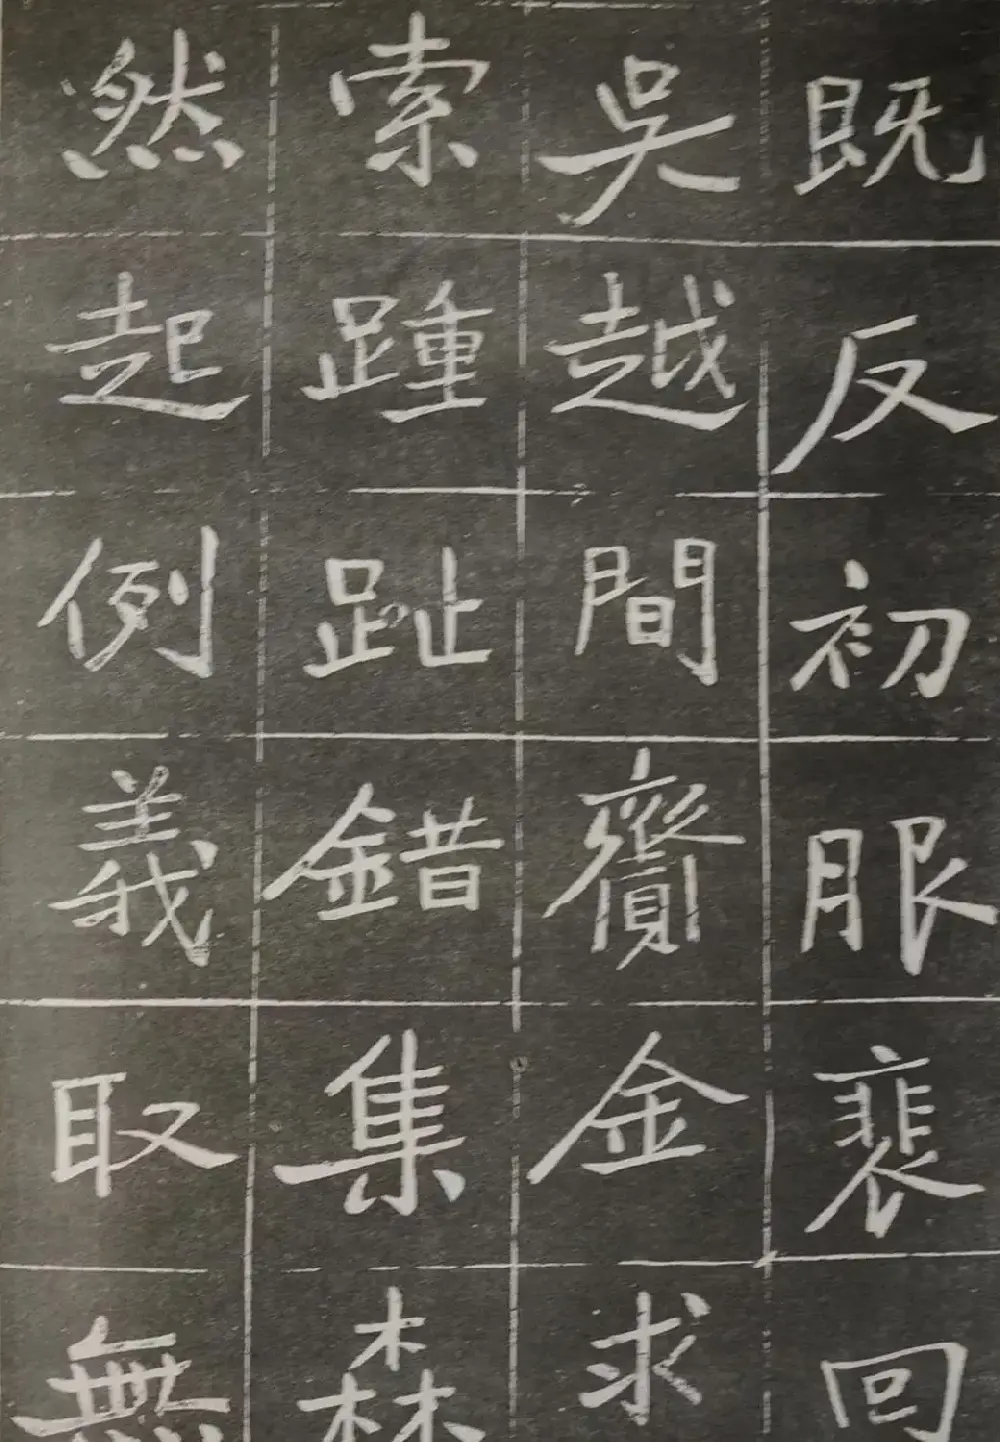 既反初服裴回
吳越間齎金求
索踵趾錯集森
然起例義取無